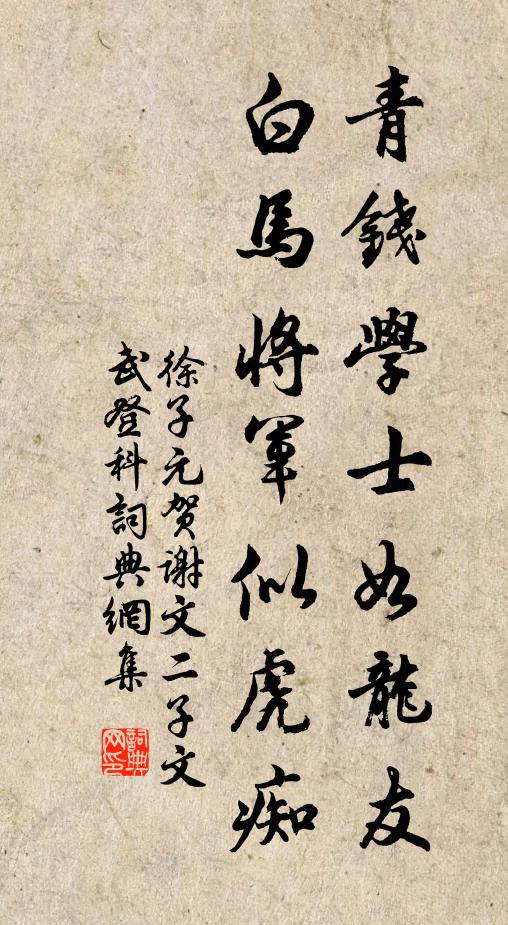 青錢學士如龍友
白馬將軍似虎痴
徐子元贺谢文二子文
武登科詞典網集
詞典
网印